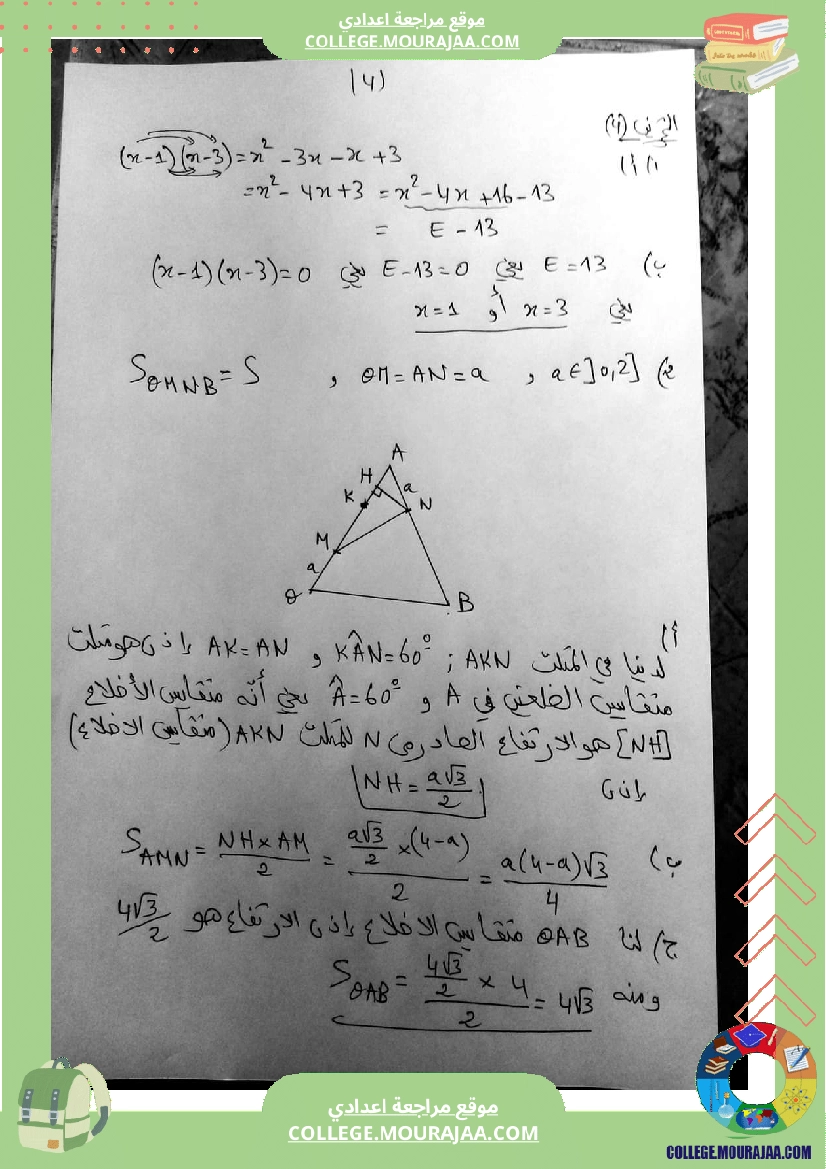 موقع مراجعة اعدادي
COLLEGE.MOURAJAA.COM
(4)
التمرين (4)
1) أ)
(x-1)(x-3) = x² - 3x - x + 3
= x² - 4x + 3 = x² - 4x + 16 - 13
= E - 13
ب) E = 13 يعني E - 13 = 0 يعني (x-1)(x-3) = 0
يعني x = 3 أو x = 1
2) a ∈ ]0,2] , OM = AN = a , S_OMNB = S
A
H
a
K
N
M
a
O
B
أ)
لدينا في المثلث AKN ; KÂN = 60° و AK = AN إذن هو مثلث
متقايس الضلعين في A و Â = 60° يعني أنه متقايس الأضلاع
[NH] هو الارتفاع الصادر من N للمثلث AKN (متقايس الاضلاع)
إذن NH = a√3/2
ب) S_AMN = NH × AM / 2 = (a√3/2 × (4-a)) / 2 = a(4-a)√3 / 4
ج) لنا OAB متقايس الاضلاع إذن الارتفاع هو 4√3/2
ومنه S_OAB = (4√3/2 × 4) / 2 = 4√3
موقع مراجعة اعدادي
COLLEGE.MOURAJAA.COM
COLLEGE.MOURAJAA.COM